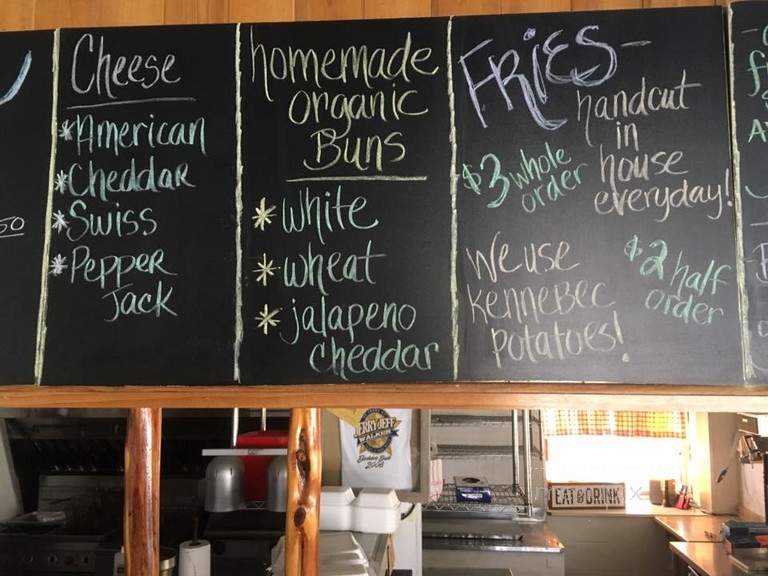 50
Cheese
*American
*Cheddar
*Swiss
*Pepper
Jack
homemade
organic
Buns
*white
*wheat
*jalapeno
cheddar
FRIES-
handcut
in
house
everyday!
$3 whole
order
We use
Kennebec
potatoes!
$2 half
order
JERRY JEFF
WALKER
Birthday Bash
EAT & DRINK